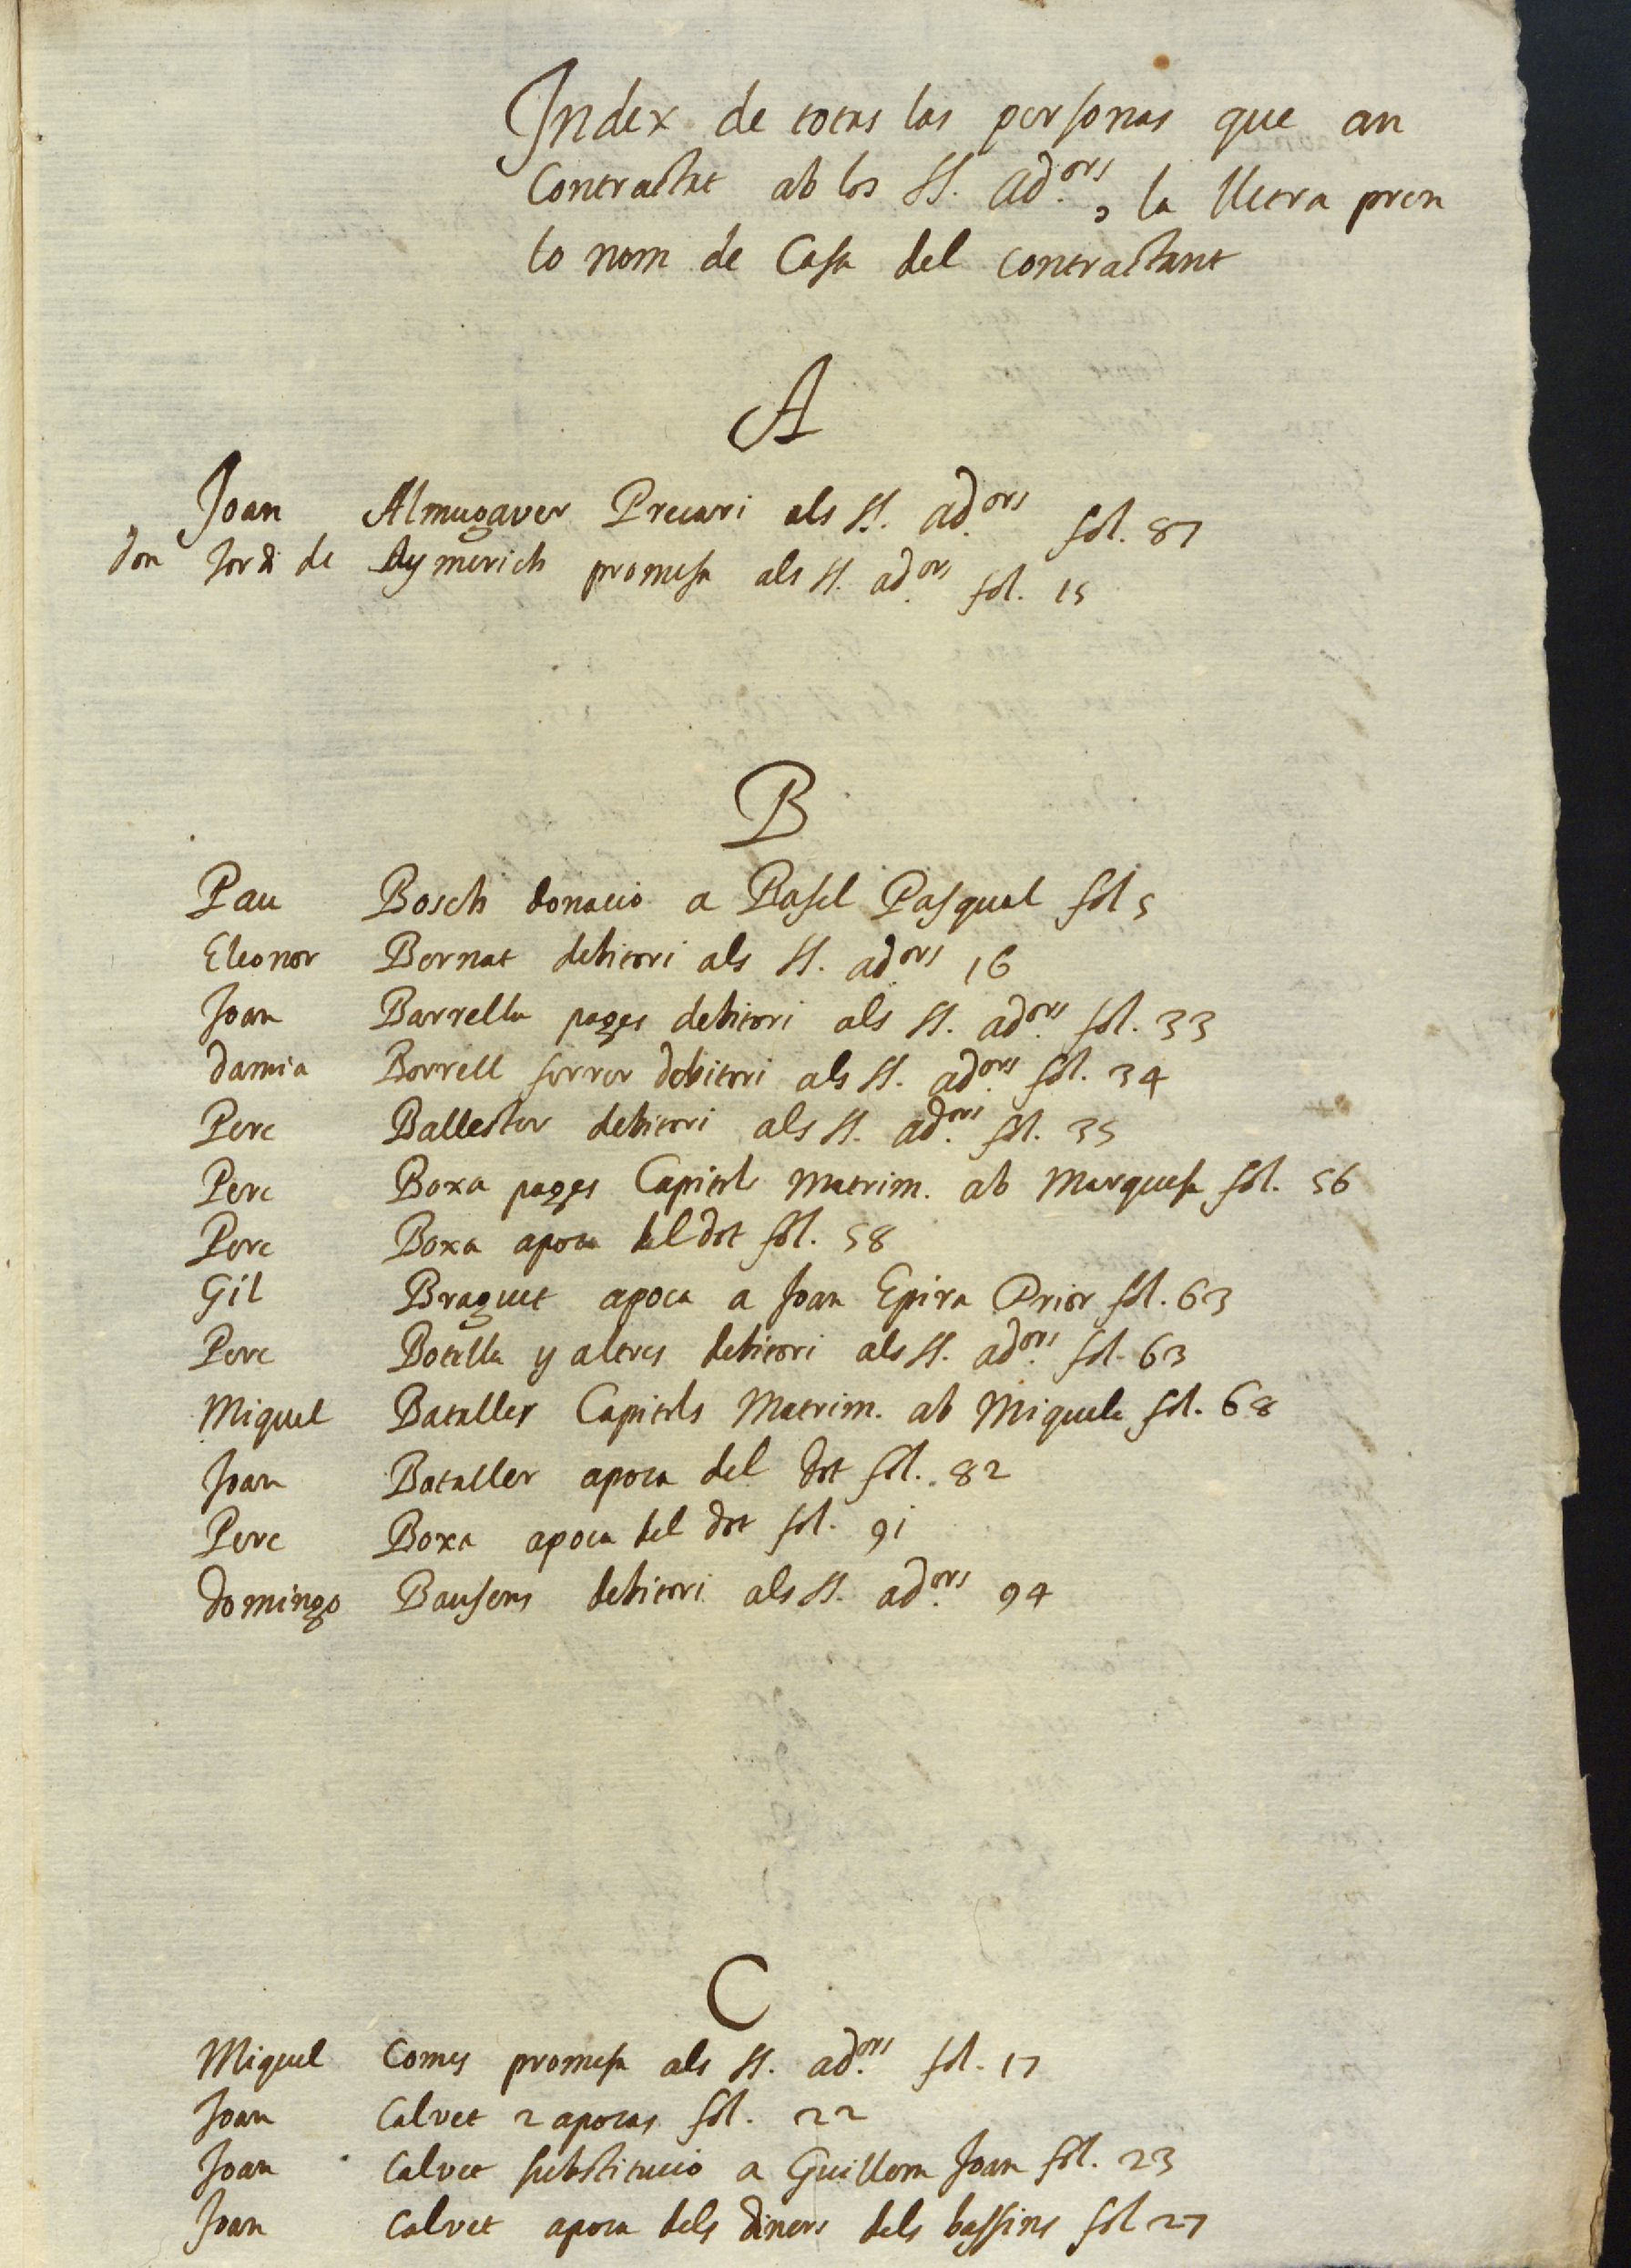 Index de totas las personas que an
Contractat ab los SS. ad.ors, la lletra pren
lo nom de Casa del contractant
A
Joan Almugaver Precari als SS. ad.ors fol. 87
don Jordi de Aymerich promesa als SS. ad.ors fol. 15
B
Pau Bosch donacio a Basel Pasqual fol 5
Eleonor Bernat debitori als SS. ad.ors 16
Joan Barrella pages debitori als SS. ad.ors fol. 33
damia Borrell ferrer debitori als SS. ad.ors fol. 34
Pere Ballester debitori als SS. ad.ors fol. 35
Pere Boxa pages Capitols Matrim. ab Marquesa fol. 56
Pere Boxa apoca del dot fol. 58
Gil Braguet apoca a Joan Epira Prior fol. 63
Pere Botella y altres debitori als SS. ad.ors fol. 63
Miquel Bataller Capitols Matrim. ab Miquela fol. 68
Joan Bataller apoca del dot fol. 82
Pere Boxa apoca del dot fol. 91
domingo Bausens debitori als SS. ad.ors 94
C
Miquel Comes promesa als SS. ad.ors fol. 17
Joan Calvet 2 apocas fol. 22
Joan Calvet substitucio a Guillem Joan fol. 23
Joan Calvet apoca dels diners dels bassins fol 27